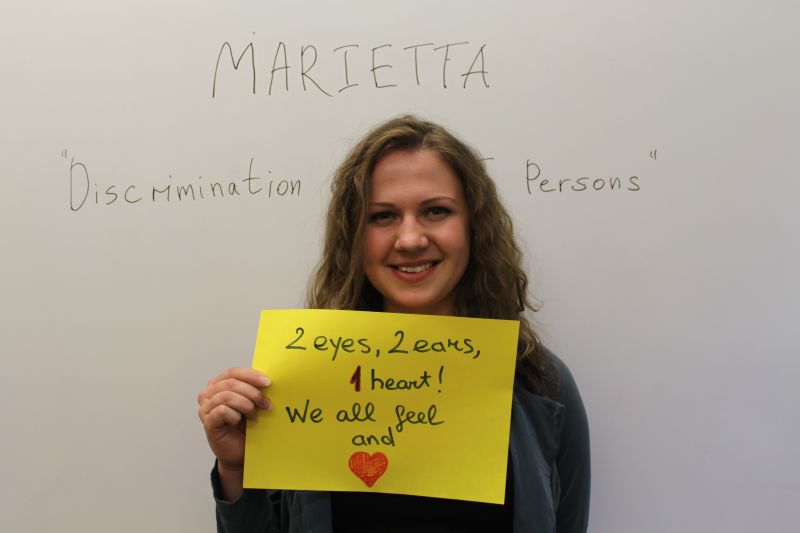 MARIETTA
"Discrimination Persons"
2 eyes, 2 ears,
1 heart!
We all feel
and